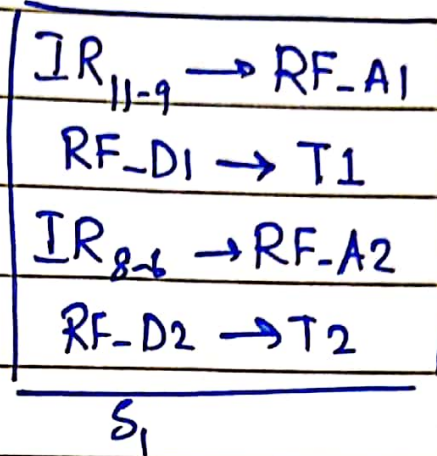 IR₁₁₋₉ → RF_A1
RF_D1 → T1
IR₈₋₆ → RF_A2
RF_D2 → T2
S₁